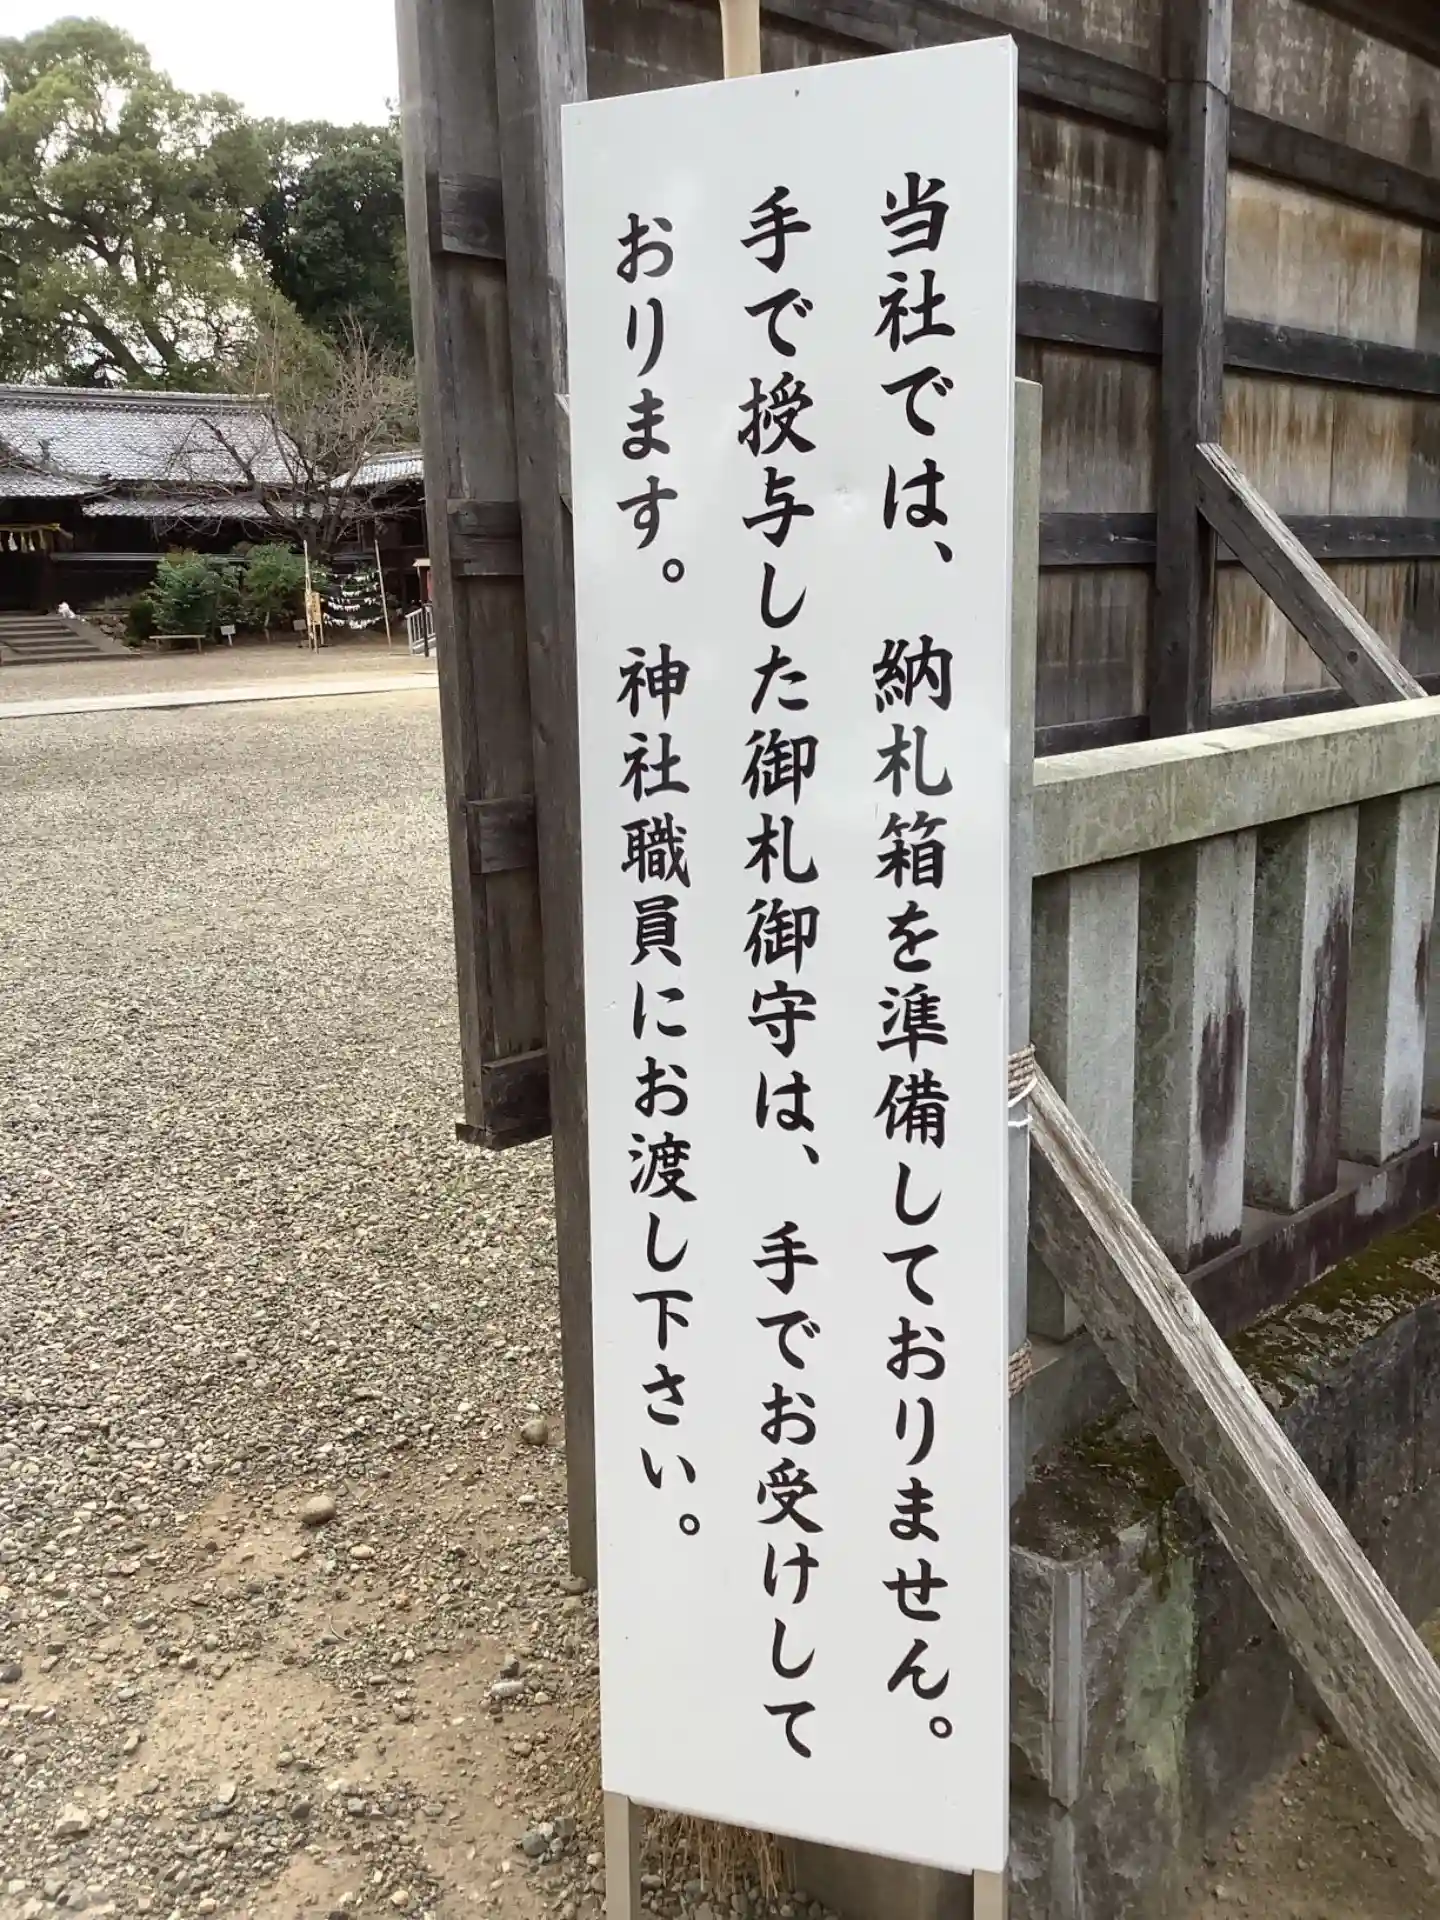 当社では、納札箱を準備しておりません。
手で授与した御札御守は、手でお受けして
おります。神社職員にお渡し下さい。